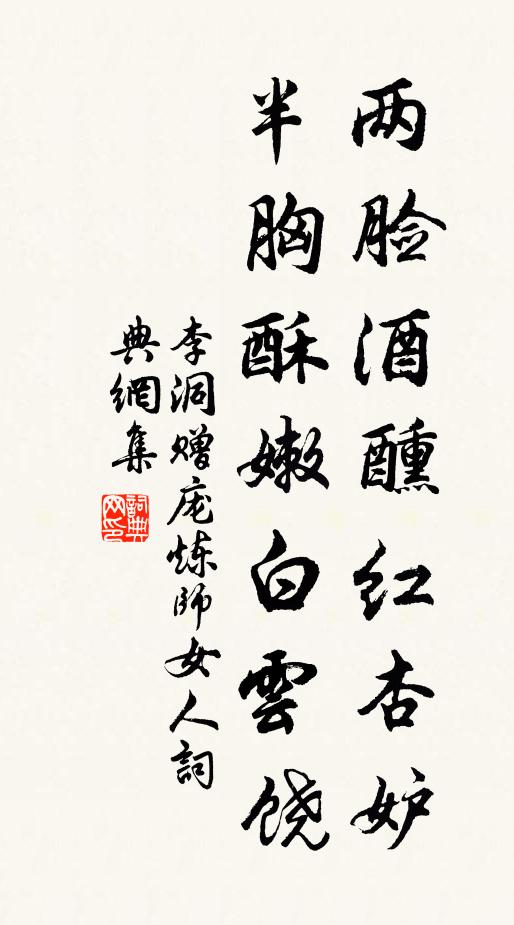 两脸酒醺红杏妒
半胸酥嫩白雲饶
李洞赠庞炼師女人詞
典網集
詞典网印